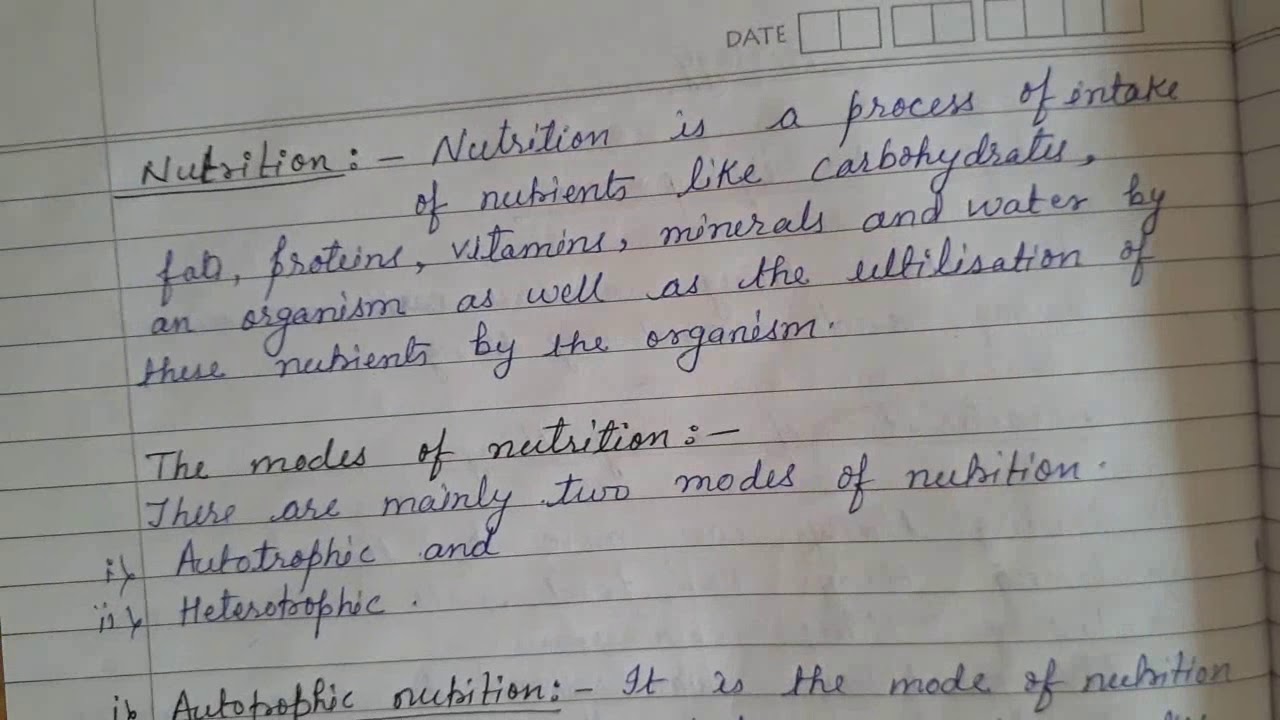 DATE
Nutrition:- Nutrition is a process of intake
of nutrients like carbohydrates,
fats, proteins, vitamins, minerals and water by
an organism as well as the ultilisation of
these nutrients by the organism.
The modes of nutrition:-
There are mainly two modes of nutrition.
i) Autotrophic and
ii) Heterotrophic.
i) Autotrophic nutrition:- It is the mode of nutrition